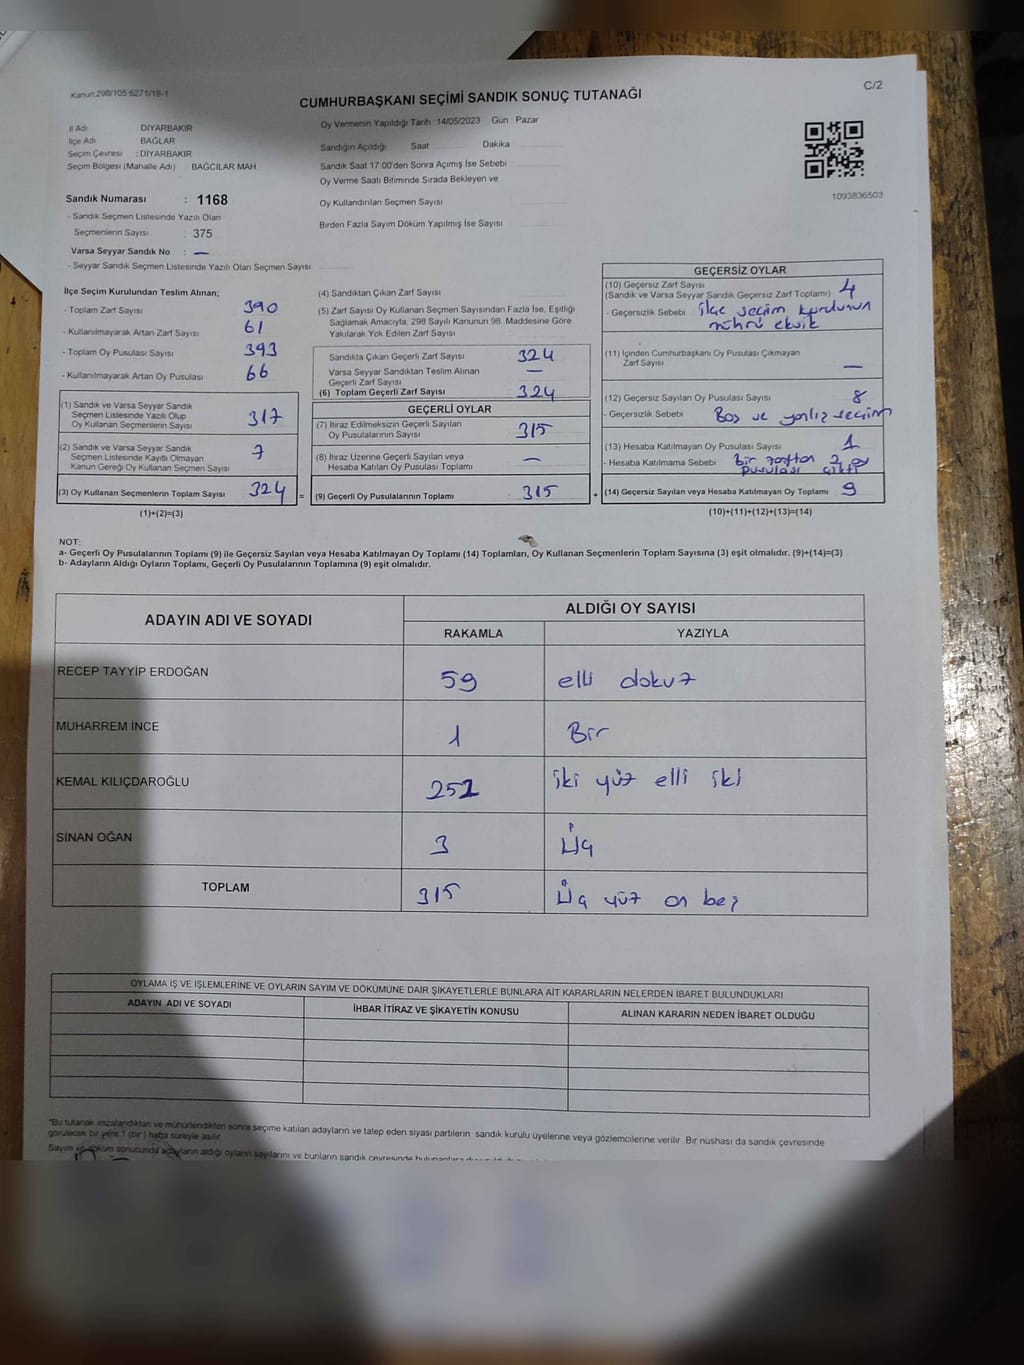 Kanun:298/105 6271/18-1
C/2
CUMHURBAŞKANI SEÇİMİ SANDIK SONUÇ TUTANAĞI
İl Adı DİYARBAKIR
İlçe Adı BAĞLAR
Seçim Çevresi : DİYARBAKIR
Seçim Bölgesi (Mahalle Adı) BAĞCILAR MAH
Oy Vermenin Yapıldığı Tarih :14/05/2023 Gün : Pazar
Sandığın Açıldığı Saat Dakika
Sandık Saat 17:00'den Sonra Açımış İse Sebebi
Oy Verme Saati Bitiminde Sırada Bekleyen ve
Oy Kullandırılan Seçmen Sayısı
Birden Fazla Sayım Döküm Yapılmış İse Sayısı
1093836503
Sandık Numarası : 1168
- Sandık Seçmen Listesinde Yazılı Olan
Seçmenlerin Sayısı : 375
Varsa Seyyar Sandık No : —
- Seyyar Sandık Seçmen Listesinde Yazılı Olan Seçmen Sayısı
İlçe Seçim Kurulundan Teslim Alınan;
- Toplam Zarf Sayısı 390
- Kullanılmayarak Artan Zarf Sayısı 61
- Toplam Oy Pusulası Sayısı 393
- Kullanılmayarak Artan Oy Pusulası 66
(1) Sandık ve Varsa Seyyar Sandık
Seçmen Listesinde Yazılı Olup
Oy Kullanan Seçmenlerin Sayısı 317
(2) Sandık ve Varsa Seyyar Sandık
Seçmen Listesinde Kayıtlı Olmayan
Kanun Gereği Oy Kullanan Seçmen Sayısı 7
(3) Oy Kullanan Seçmenlerin Toplam Sayısı 324 =
(1)+(2)=(3)
(4) Sandıktan Çıkan Zarf Sayısı
(5) Zarf Sayısı Oy Kullanan Seçmen Sayısından Fazla İse, Eşitliği
Sağlamak Amacıyla, 298 Sayılı Kanunun 98. Maddesine Göre
Yakılarak Yok Edilen Zarf Sayısı
Sandıkta Çıkan Geçerli Zarf Sayısı 324
Varsa Seyyar Sandıktan Teslim Alınan
Geçerli Zarf Sayısı —
(6) Toplam Geçerli Zarf Sayısı 324
GEÇERLİ OYLAR
(7) İtiraz Edilmeksizin Geçerli Sayılan
Oy Pusulalarının Sayısı 315
(8) İtiraz Üzerine Geçerli Sayılan veya
Hesaba Katılan Oy Pusulası Toplamı —
(9) Geçerli Oy Pusulalarının Toplamı 315 +
GEÇERSİZ OYLAR
(10) Geçersiz Zarf Sayısı
(Sandık ve Varsa Seyyar Sandık Geçersiz Zarf Toplamı) 4
- Geçersizlik Sebebi ilçe seçim kurulunun
mührü eksik
(11) İçinden Cumhurbaşkanı Oy Pusulası Çıkmayan
Zarf Sayısı —
(12) Geçersiz Sayılan Oy Pusulası Sayısı 8
- Geçersizlik Sebebi Boş ve yanlış seçim
(13) Hesaba Katılmayan Oy Pusulası Sayısı 1
- Hesaba Katılmama Sebebi Bir zarftan 2 oy
pusulası çıktı
(14) Geçersiz Sayılan veya Hesaba Katılmayan Oy Toplamı 9
(10)+(11)+(12)+(13)=(14)
NOT:
a- Geçerli Oy Pusulalarının Toplamı (9) ile Geçersiz Sayılan veya Hesaba Katılmayan Oy Toplamı (14) Toplamları, Oy Kullanan Seçmenlerin Toplam Sayısına (3) eşit olmalıdır. (9)+(14)=(3)
b- Adayların Aldığı Oyların Toplamı, Geçerli Oy Pusulalarının Toplamına (9) eşit olmalıdır.
ADAYIN ADI VE SOYADI ALDIĞI OY SAYISI
RAKAMLA YAZIYLA
RECEP TAYYİP ERDOĞAN 59 elli dokuz
MUHARREM İNCE 1 Bir
KEMAL KILIÇDAROĞLU 252 iki yüz elli iki
SİNAN OĞAN 3 Üç
TOPLAM 315 Üç yüz on beş
OYLAMA İŞ VE İŞLEMLERİNE VE OYLARIN SAYIM VE DÖKÜMÜNE DAİR ŞİKAYETLERLE BUNLARA AİT KARARLARIN NELERDEN İBARET BULUNDUKLARI
ADAYIN ADI VE SOYADI İHBAR İTİRAZ VE ŞİKAYETİN KONUSU ALINAN KARARIN NEDEN İBARET OLDUĞU
"Bu tutanak imzalandıktan ve mühürlendikten sonra seçime katılan adayların ve talep eden siyasi partilerin sandık kurulu üyelerine veya gözlemcilerine verilir. Bir nüshası da sandık çevresinde
görülecek bir yere 1 (bir) hafta süreyle asılır.
Sayım ve döküm sonucunda adayların aldığı oyların sayılarını ve bunların sandık çevresinde